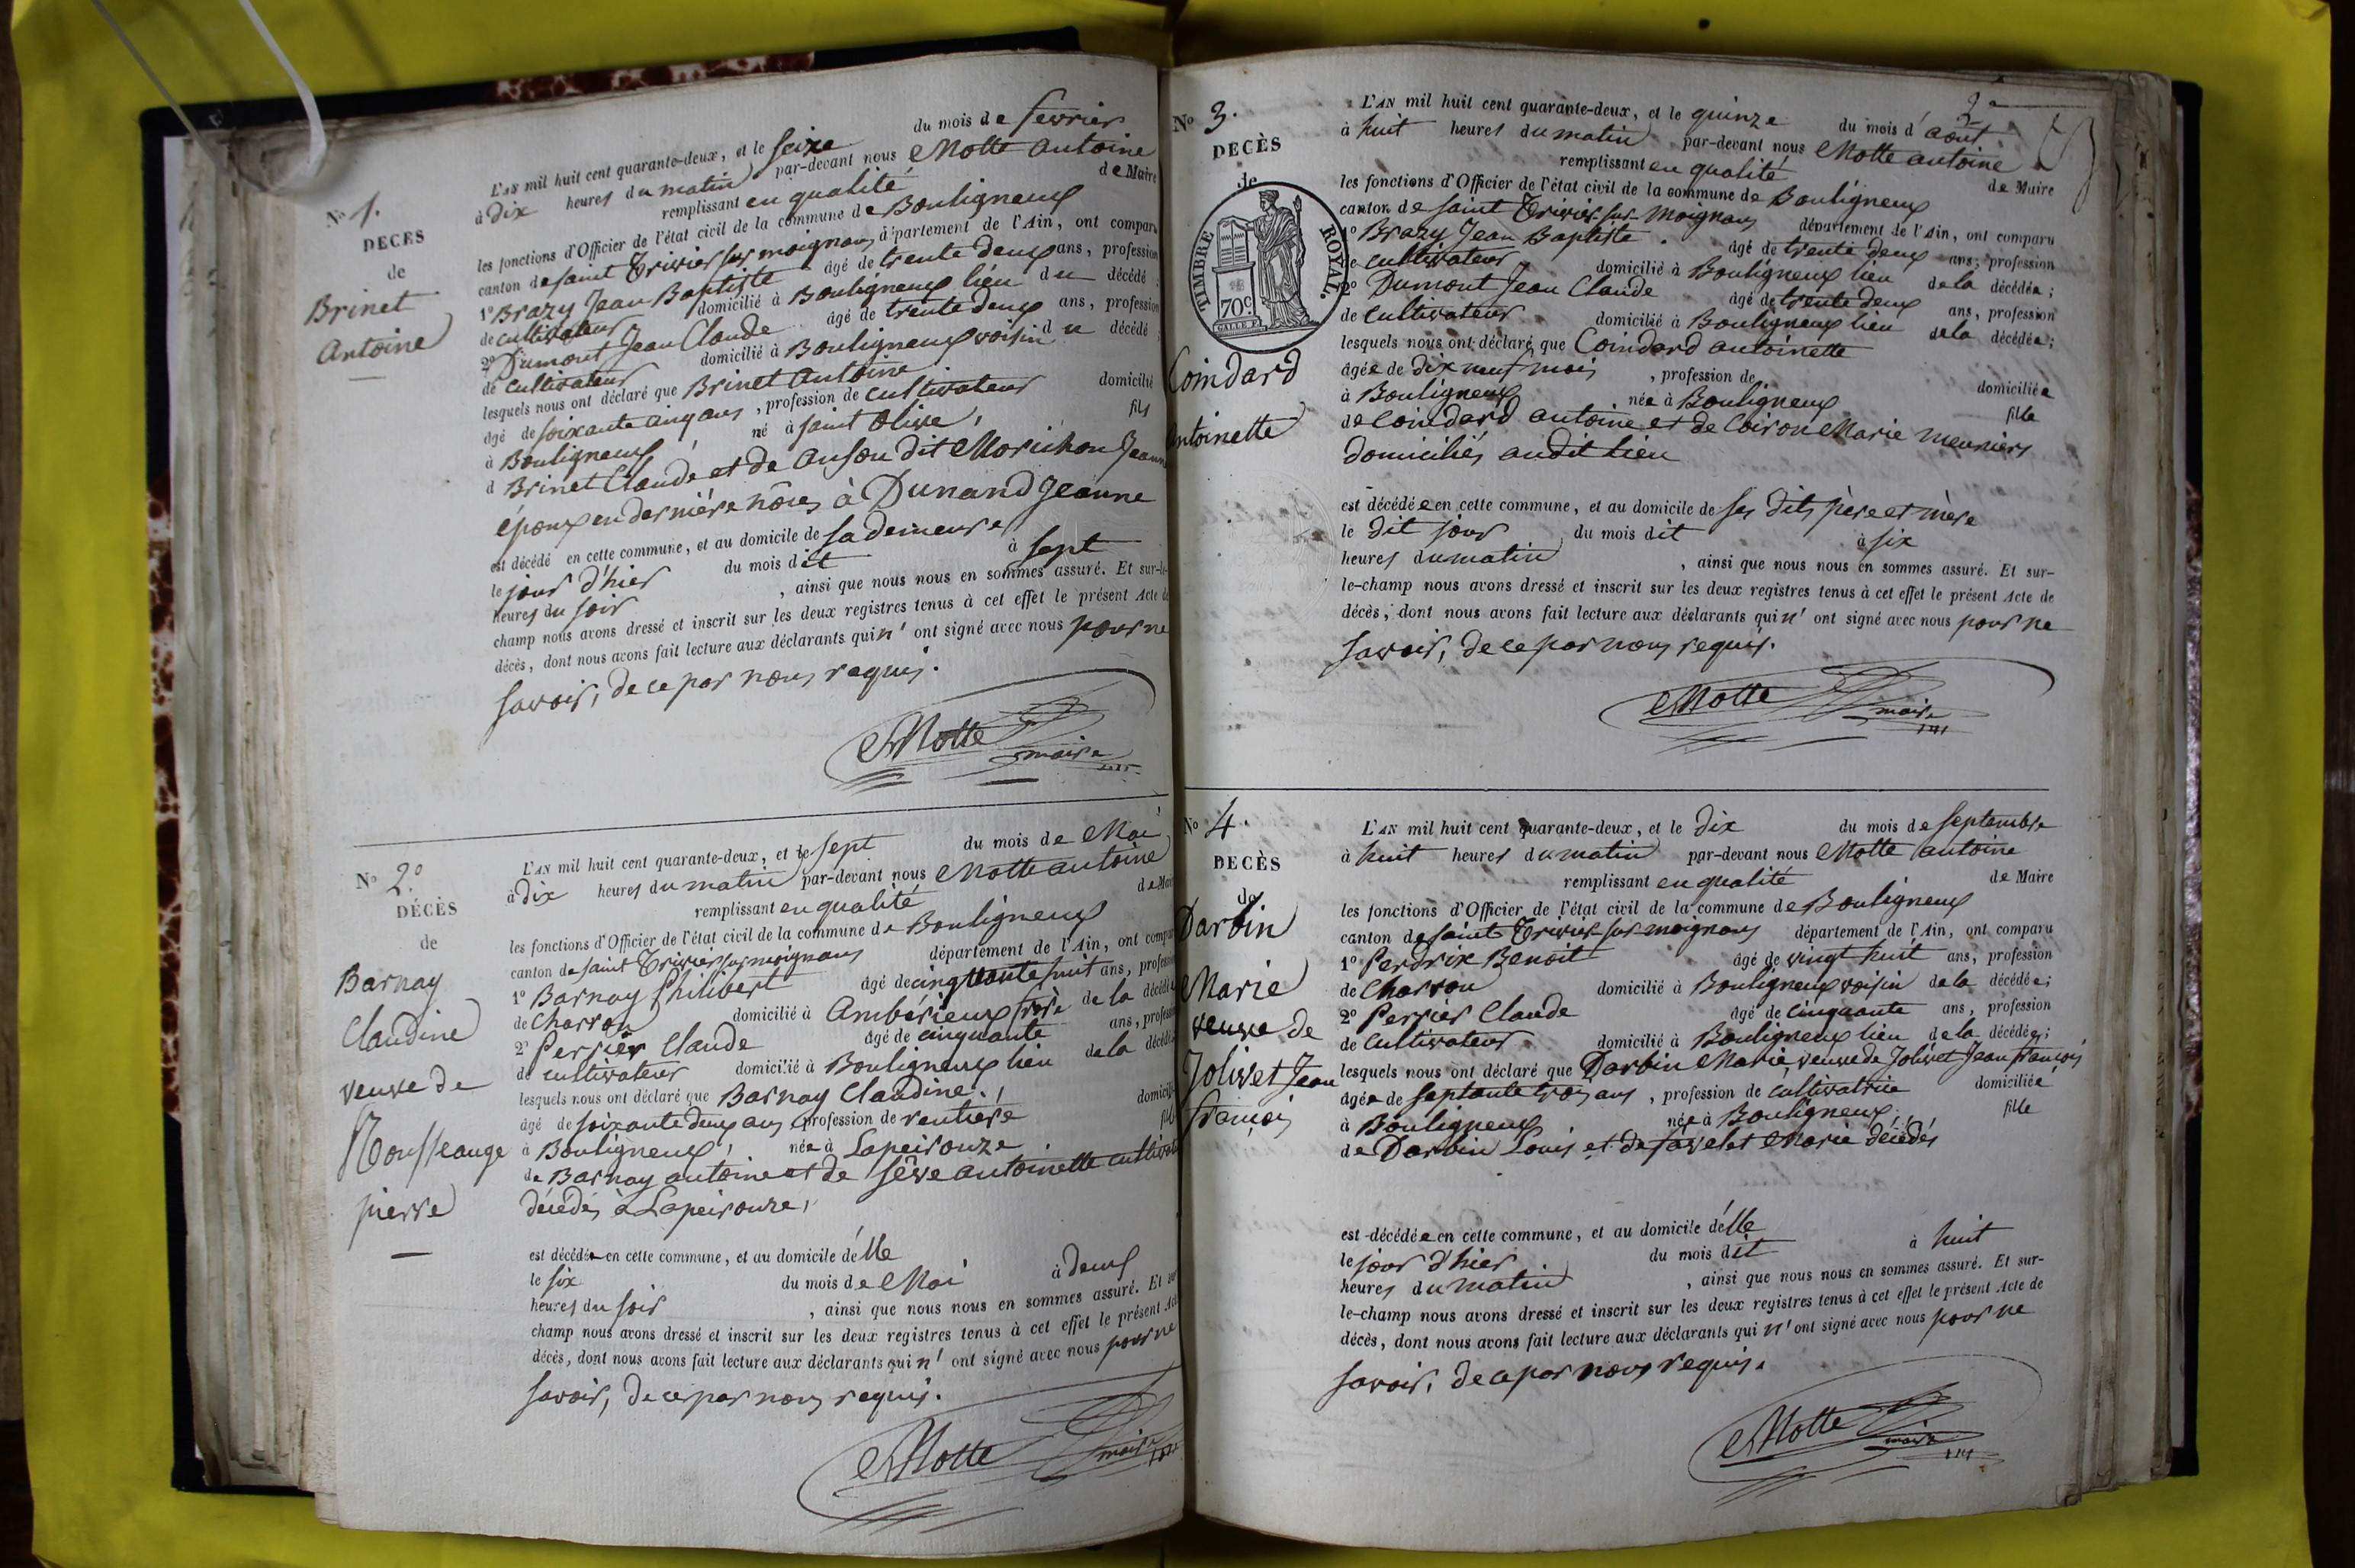 N° 1.
DECÈS
de
Brinet
Antoine
L'AN mil huit cent quarante-deux, et le seize du mois de fevrier
à dix heures du matin par-devant nous Motte Antoine
remplissant en qualité de Maire
les fonctions d'Officier de l'état civil de la commune de Bouligneux
canton de saint Trivier sur moignans département de l'Ain, ont comparu
1° Brazy Jean Baptiste âgé de trente deux ans, profession
de cultivateur domicilié à Bouligneux lieu du décédé;
2° Dumont Jean Claude âgé de trente deux ans, profession
de cultivateur domicilié à Bouligneux voisin du décédé;
lesquels nous ont déclaré que Brinet Antoine
âgé de soixante cinq ans, profession de cultivateur domicilié
à Bouligneux né à saint Olive, fils
d Brinet Claude et de dit Jeanne
époux en dernière nôces à Dunand Jeanne
est décédé en cette commune, et au domicile de sa demeure,
le jour d'hier du mois dit à sept
heures du soir, ainsi que nous nous en sommes assuré. Et sur-le-
champ nous avons dressé et inscrit sur les deux registres tenus à cet effet le présent Acte de
décès, dont nous avons fait lecture aux déclarants qui n' ont signé avec nous pour ne
savoir, de ce par nous requis.
Motte
maire
N° 2.°
DÉCÈS
de
Barnay
Claudine
veuve de
Rousseauge
pierre
L'AN mil huit cent quarante-deux, et le sept du mois de Mai
à dix heures du matin par-devant nous Motte antoine
remplissant en qualité de Maire
les fonctions d'Officier de l'état civil de la commune de Bouligneux
canton de saint Trivier sur moignans département de l'Ain, ont comparu
1° Barnay Philibert âgé de cinquante huit ans, profession
de Charron domicilié à Ambérieux frère de la décédée
2° Perrier Claude âgé de cinquante ans, profession
de cultivateur domicilié à Bouligneux lieu de la décédée
lesquels nous ont déclaré que Barnay Claudine,
âgé de soixante deux ans, profession de rentière domicilié
à Bouligneux, née à Lapeirouze fille
de Barnay antoine et de Sève antoinette
décédés à Lapeirouze,
est décédée en cette commune, et au domicile d'elle
le six du mois de Mai à deux
heures du soir, ainsi que nous nous en sommes assuré. Et sur
champ nous avons dressé et inscrit sur les deux registres tenus à cet effet le présent Acte
décès, dont nous avons fait lecture aux déclarants qui n' ont signé avec nous pour ne
savoir, de ce par nous requis.
Motte
maire
N° 3.
DECÈS
de
TIMBRE ROYAL.
70c.
Coindard
Antoinette
L'AN mil huit cent quarante-deux, et le quinze du mois d' août
à huit heures du matin par-devant nous Motte antoine
remplissant en qualité de Maire
les fonctions d'Officier de l'état civil de la commune de Bouligneux
canton de saint Trivier sur moignans département de l'Ain, ont comparu
1° Brazy Jean Baptiste âgé de trente deux ans, profession
de cultivateur domicilié à Bouligneux lieu de la décédée;
2° Dumont Jean Claude âgé de trente deux ans, profession
de cultivateur domicilié à Bouligneux lieu de la décédée;
lesquels nous ont déclaré que Coindard antoinette
âgée de dix neuf mois, profession de domiciliée
à Bouligneux née à Bouligneux fille
de Coindard antoine et de Coiron Marie meuniers
domiciliés audit lieu
est décédée en cette commune, et au domicile de ses dits père et mère
le dit jour du mois dit à six
heures du matin, ainsi que nous nous en sommes assuré. Et sur-
le-champ nous avons dressé et inscrit sur les deux registres tenus à cet effet le présent Acte de
décès, dont nous avons fait lecture aux déclarants qui n' ont signé avec nous pour ne
savoir, de ce par nous requis.
Motte
maire
N° 4.
DECÈS
de
Darbin
Marie
veuve de
Jolivet Jean
françois
L'AN mil huit cent quarante-deux, et le dix du mois de septembre
à huit heures du matin par-devant nous Motte antoine
remplissant en qualité de Maire
les fonctions d'Officier de l'état civil de la commune de Bouligneux
canton de saint Trivier sur moignans département de l'Ain, ont comparu
1° Perdrix Benoit âgé de vingt huit ans, profession
de Charron domicilié à Bouligneux voisin de la décédée;
2° Perrier Claude âgé de cinquante ans, profession
de cultivateur domicilié à Bouligneux lieu de la décédée;
lesquels nous ont déclaré que Darbin Marie, veuve de Jolivet Jean françois
âgée de septante trois ans, profession de cultivatrice domiciliée
à Bouligneux née à Bouligneux, fille
de Darbin Louis et de favelet Marie décédés
est décédée en cette commune, et au domicile d'elle
le jour d'hier du mois dit à huit
heures du matin, ainsi que nous nous en sommes assuré. Et sur-
le-champ nous avons dressé et inscrit sur les deux registres tenus à cet effet le présent Acte de
décès, dont nous avons fait lecture aux déclarants qui n' ont signé avec nous pour ne
savoir, de ce par nous requis.
Motte
maire